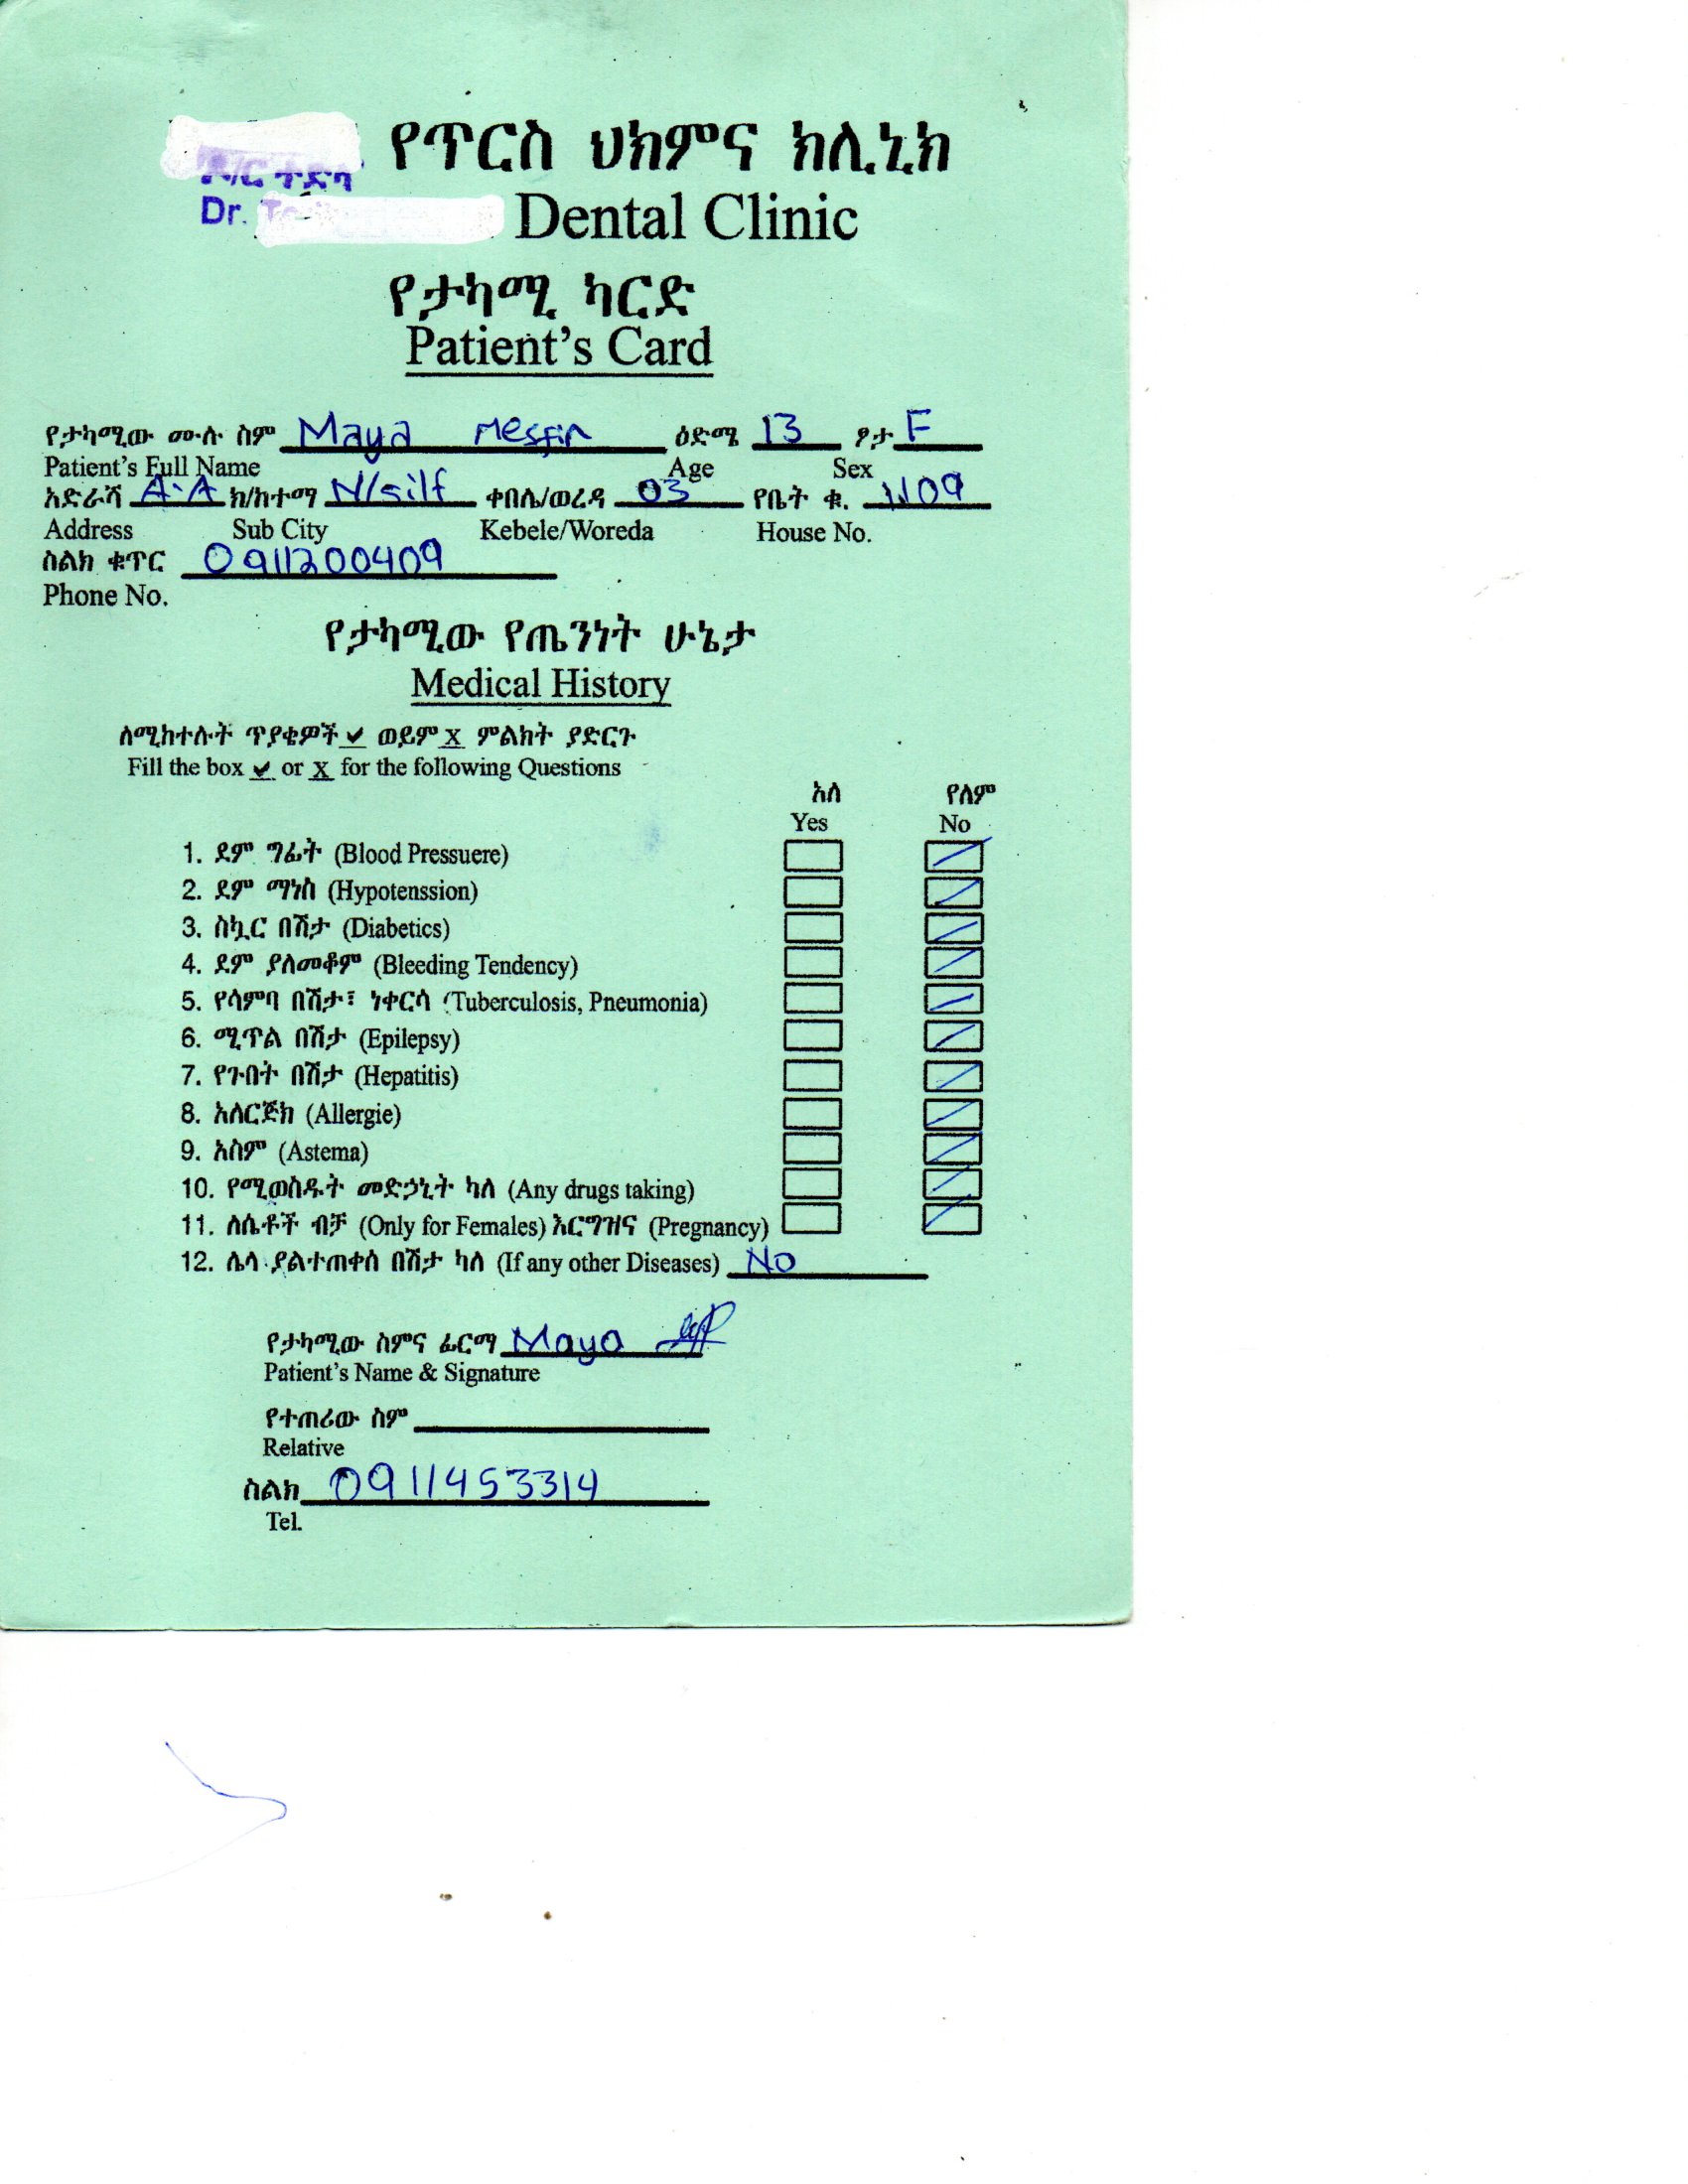 ዶ/ር ተድላ የጥርስ ህክምና ክሊኒክ
Dr. Dental Clinic
የታካሚ ካርድ
Patient's Card
የታካሚው ሙሉ ስም Maya Mesfin ዕድሜ 13 ፆታ F
Patient's Full Name Age Sex
አድራሻ A.A ክ/ከተማ N/silf ቀበሌ/ወረዳ 03 የቤት ቁ. 1109
Address Sub City Kebele/Woreda House No.
ስልክ ቁጥር 0911200409
Phone No.
የታካሚው የጤንነት ሁኔታ
Medical History
ለሚከተሉት ጥያቄዎች ✔ ወይም X ምልክት ያድርጉ
Fill the box ✔ or X for the following Questions
አለ የለም
Yes No
1. ደም ግፊት (Blood Pressuere)
2. ደም ማነስ (Hypotenssion)
3. ስኳር በሽታ (Diabetics)
4. ደም ያለመቆም (Bleeding Tendency)
5. የሳምባ በሽታ፣ ነቀርሳ (Tuberculosis, Pneumonia)
6. ሚጥል በሽታ (Epilepsy)
7. የጉበት በሽታ (Hepatitis)
8. አለርጅክ (Allergie)
9. አስም (Astema)
10. የሚወስዱት መድኃኒት ካለ (Any drugs taking)
11. ለሴቶች ብቻ (Only for Females) እርግዝና (Pregnancy)
12. ሌላ ያልተጠቀሰ በሽታ ካለ (If any other Diseases) No
የታካሚው ስምና ፊርማ Maya
Patient's Name & Signature
የተጠሪው ስም
Relative
ስልክ 0911453314
Tel.